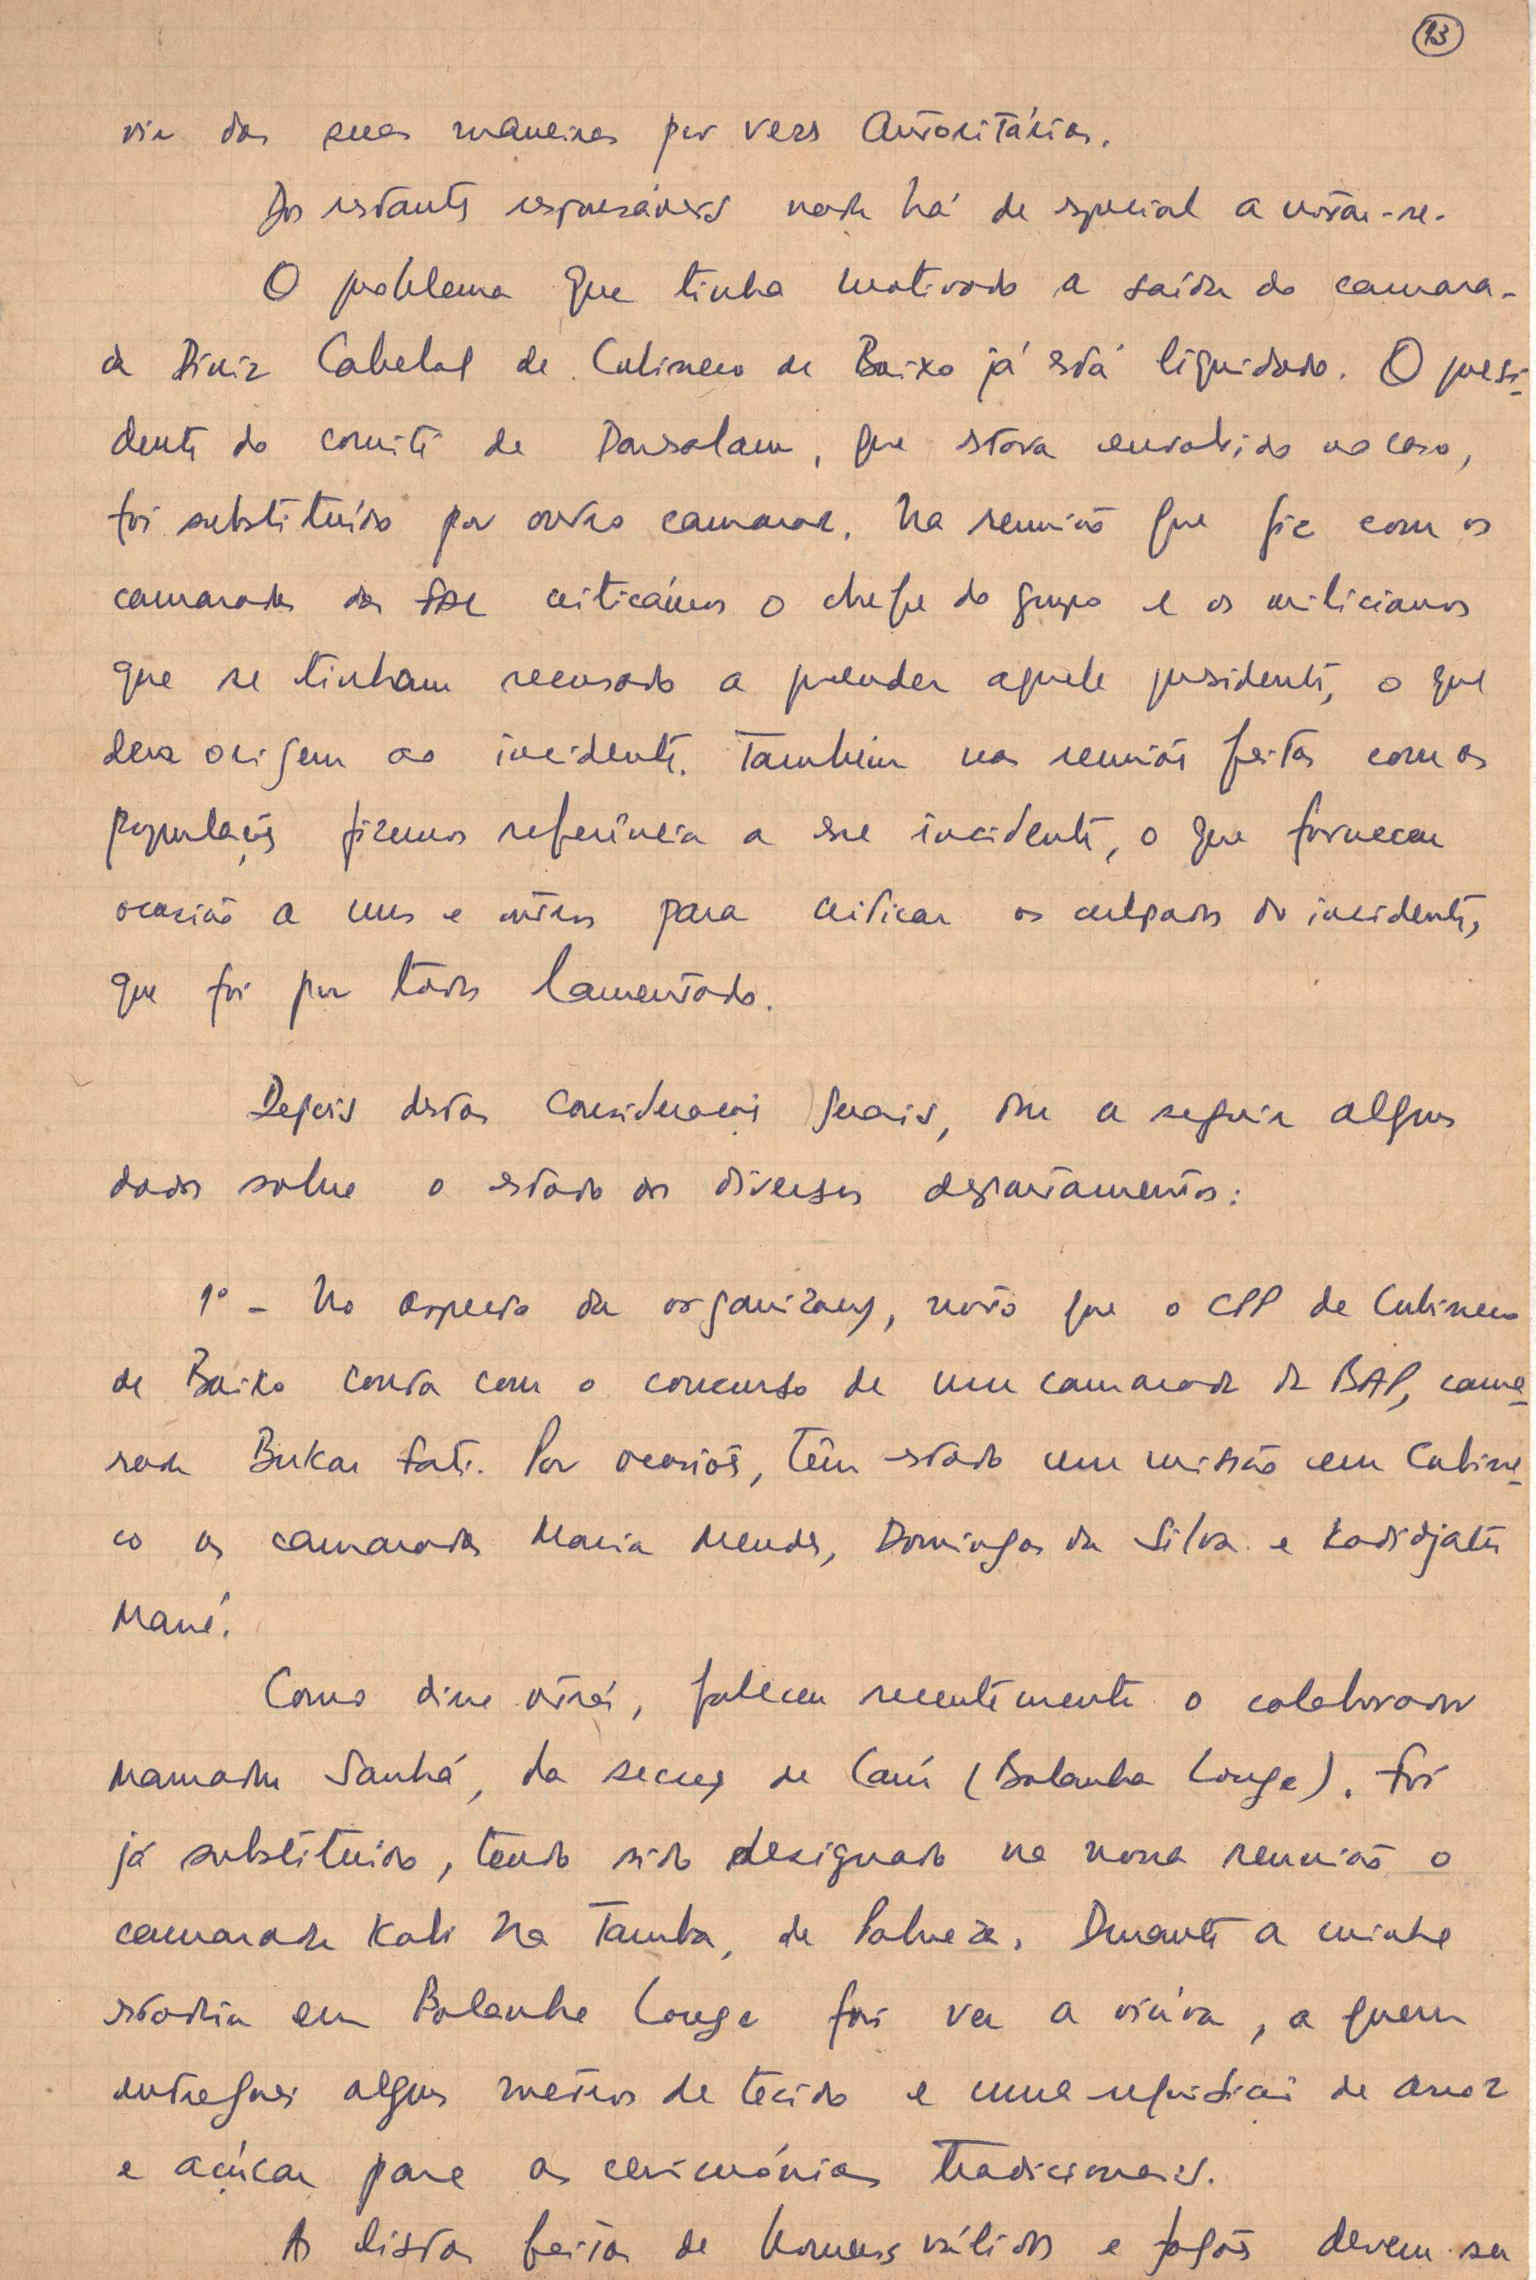 13
vir das suas maneiras por vezes autoritárias.
Dos restantes responsáveis nada há de especial a notar-se.
O problema que tinha motivado a saída do camara-
da Diniz Cabelol de Cubisseco de Baixo já está liquidado. O presi-
dente do comité de Darsalam, que estava envolvido no caso,
foi substituído por outro camarada. Na reunião que fiz com os
camaradas das FAL criticámos o chefe do grupo e os milicianos
que se tinham recusado a prender aquele presidente, o que
dera origem ao incidente. Também nas reuniões feitas com as
populações fizemos referência a esse incidente, o que forneceu
ocasião a uns e outros para criticar os culpados do incidente,
que foi por todos lamentado.
Depois destas considerações gerais, dou a seguir alguns
dados sobre o estado dos diversos departamentos:
1º - No aspecto da organização, noto que o CPP de Cubisseco
de Baixo conta com o concurso de um camarada da BAP, cama-
rada Bukar Fati. Por ocasiões, têm estado em missão em Cubisse-
co os camaradas Maria Mendes, Domingos da Silva e Kadidjatu
Mané.
Como disse atrás, faleceu recentemente o colaborador
Mamadu Sanhá, da secção de Caur (Bolanha Longe). Foi
já substituído, tendo sido designado na nossa reunião o
camarada Kali Na Tamba, de . Durante a minha
estadia em Bolanha Longe fui ver a viúva, a quem
entreguei alguns metros de tecido e uma requisição de arroz
e açúcar para as cerimónias tradicionais.
As listas feitas de homens válidos e fogões devem ser